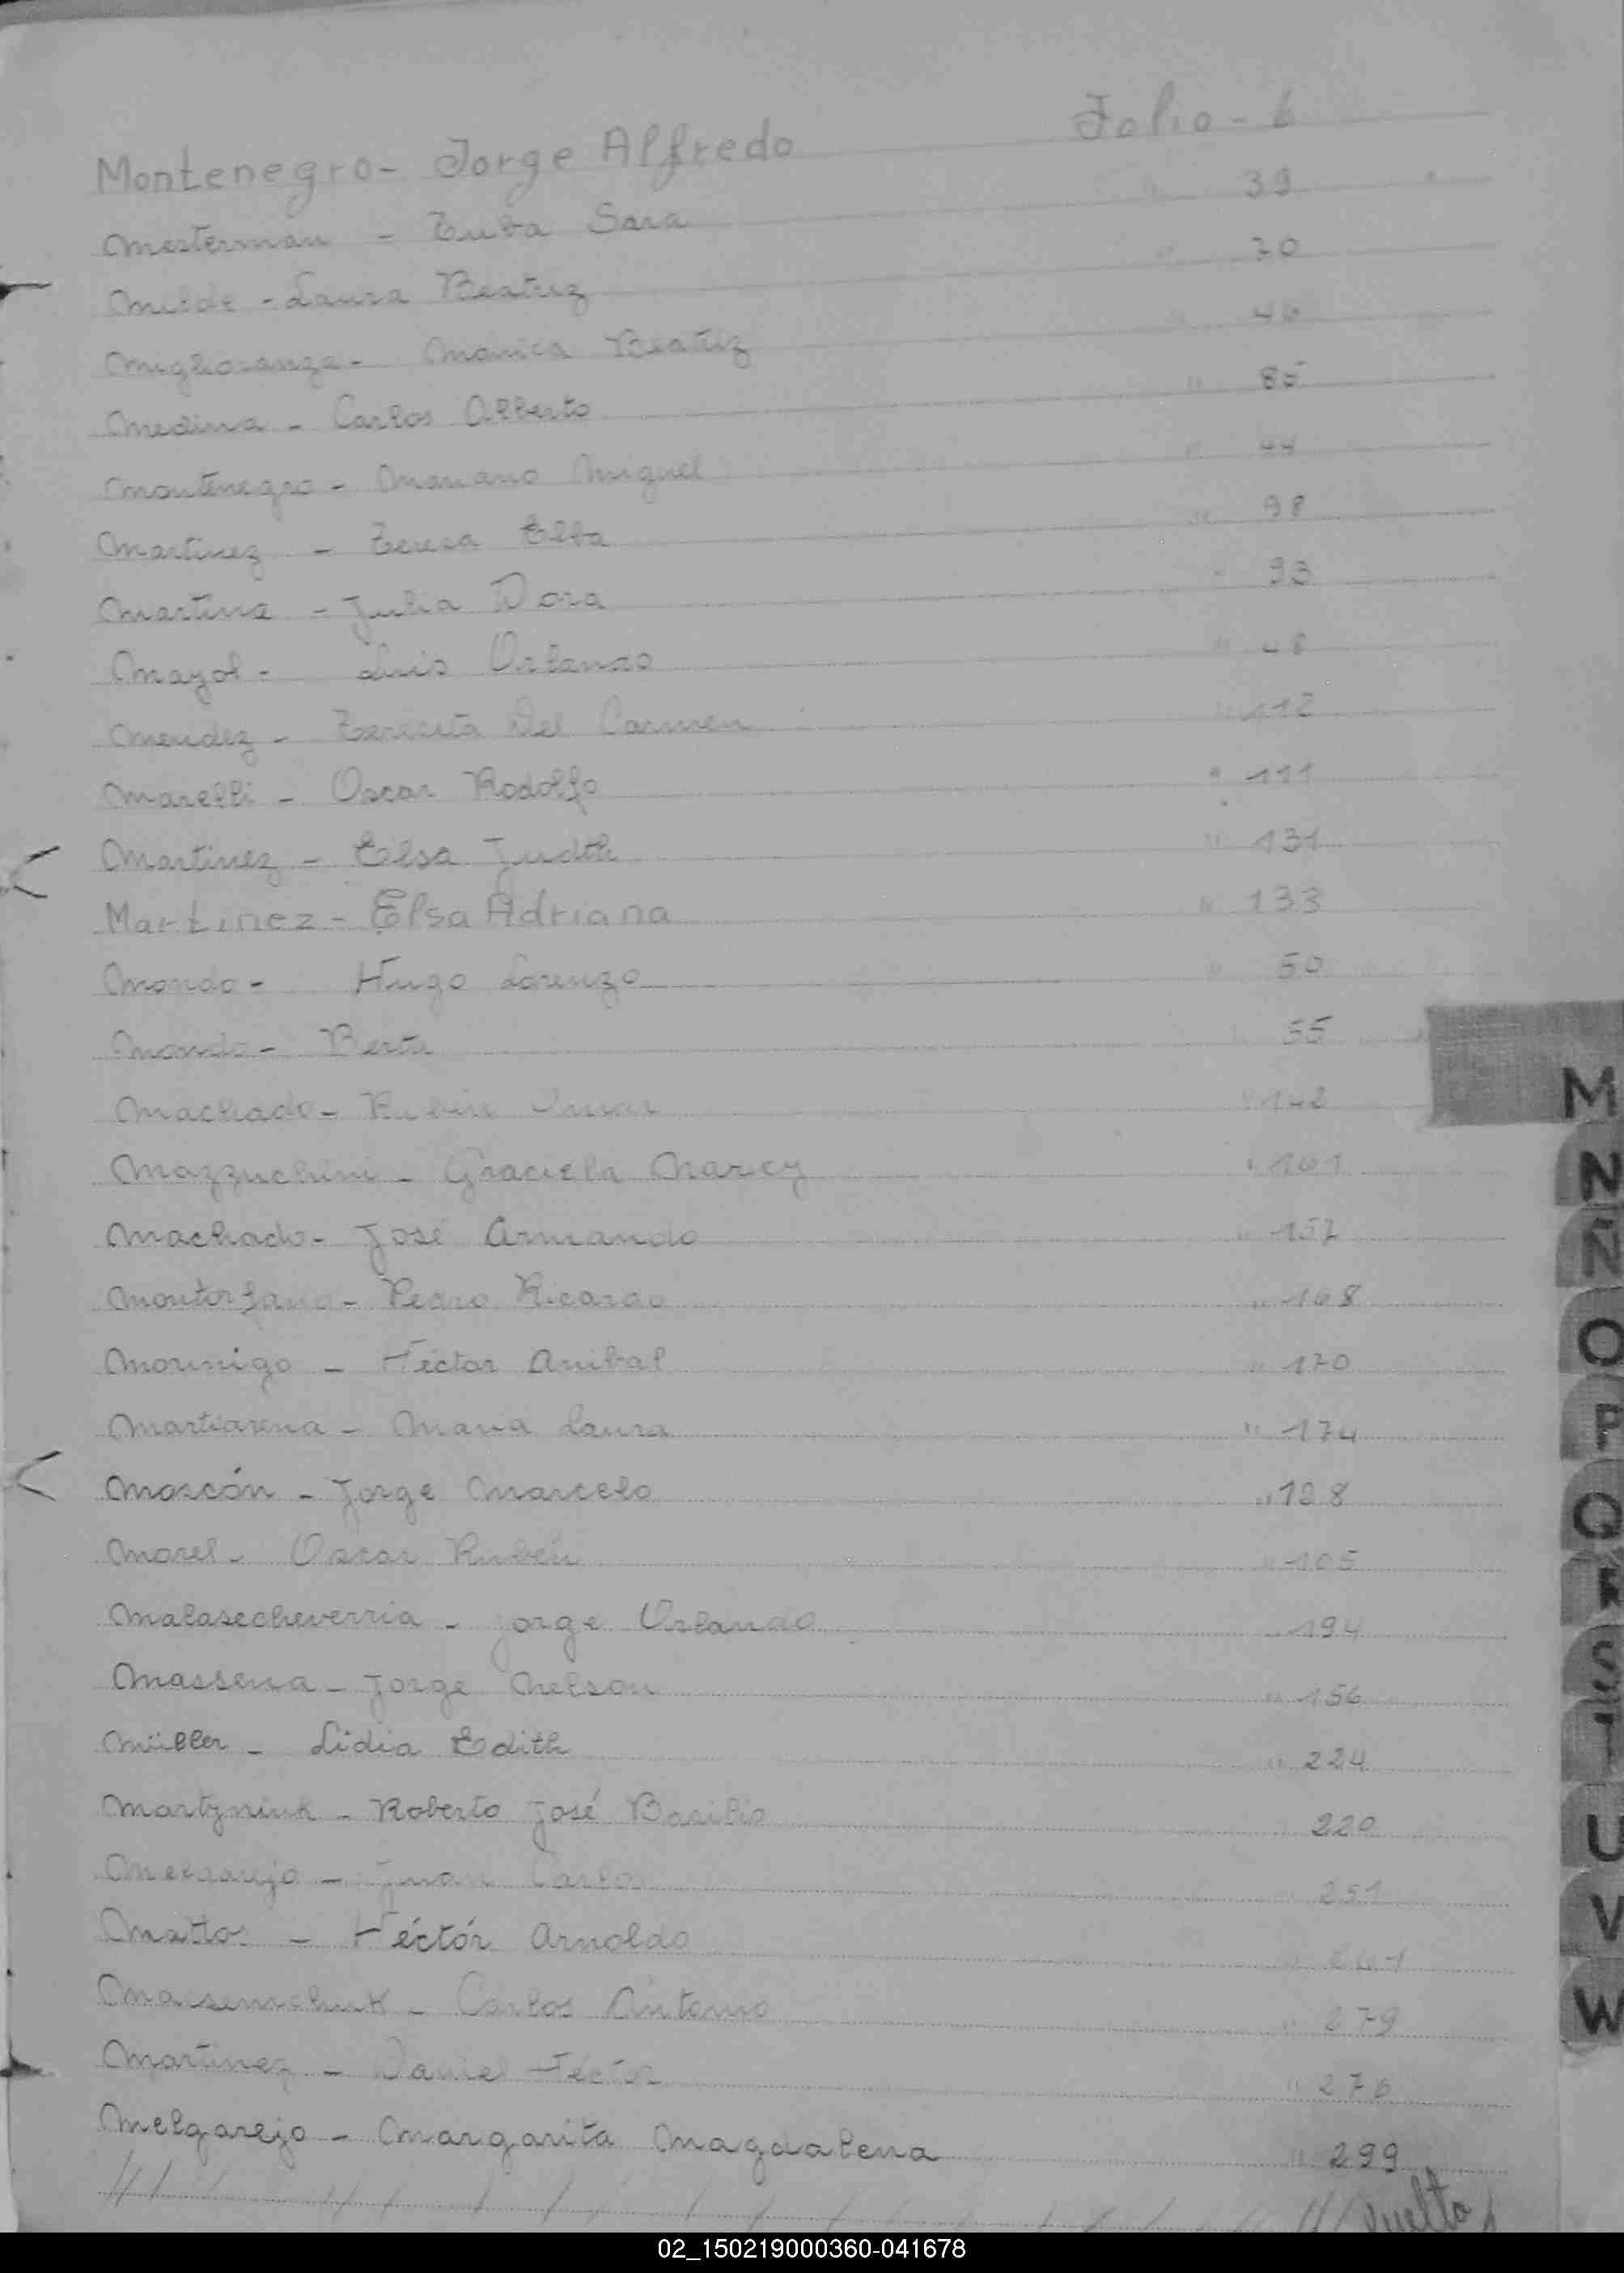 Montenegro - Jorge Alfredo Folio - 6
Mesterman - Zulta Sara " 39
Milde - Laura Beatriz " 70
Miglioranza - Mónica Beatriz " 46
Medina - Carlos Alberto " 85
Montenegro - Mariano Miguel " 44
Martinez - Teresa Elba " 98
Martina - Julia Dora " 93
Mayol - Luis Orlando " 48
Mendez - Terecita Del Carmen " 112
Marelli - Oscar Rodolfo " 111
Martinez - Elsa Judith " 131
Martinez - Elsa Adriana " 133
Mondo - Hugo Lorenzo " 50
Mondo - Berta 55
Machado - Rubén Omar " 142
Mazzuchini - Graciela Narcy " 161
Machado - José Armando " 157
Montorfano - Pedro Ricardo " 168
Morinigo - Héctor Anibal " 170
Martiarena - Maria Laura " 174
Mascón - Jorge Marcelo " 128
Morel - Oscar Rubén " 105
Malasecheverria - Jorge Orlando " 194
Massena - Jorge Nelson " 156
Müller - Lidia Edith " 224
Martyniuk - Roberto José Basilio 220
Melgarejo - Juan Carlos 251
Mattos - Héctór Arnoldo " 261
Carlos Antonio " 279
Martinez - Daniel Héctor " 276
Melgarejo - Margarita Magdalena " 299
///vuelta/
M
N
Ñ
O
P
Q
R
S
T
U
V
W
02_150219000360-041678